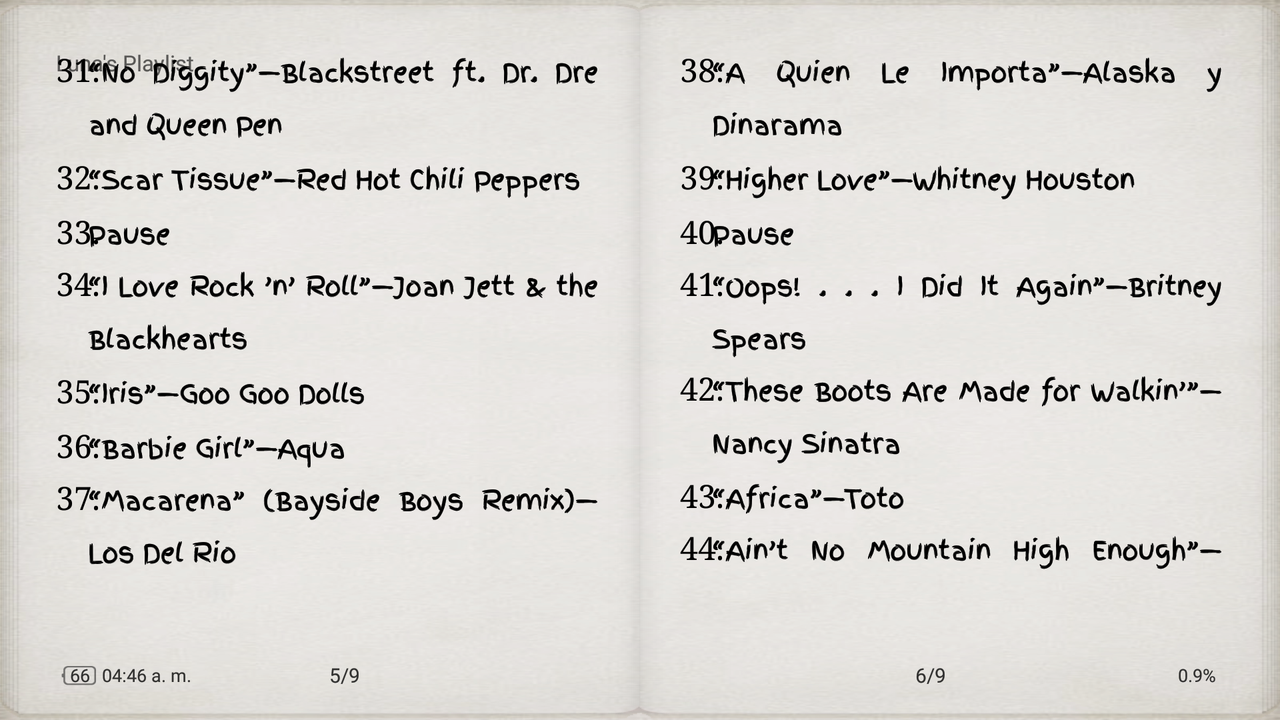 Luna's Playlist
31. “No Diggity”—Blackstreet ft. Dr. Dre
and Queen Pen
32. “Scar Tissue”—Red Hot Chili Peppers
33. Pause
34. “I Love Rock ’n’ Roll”—Joan Jett & the
Blackhearts
35. “Iris”—Goo Goo Dolls
36. “Barbie Girl”—Aqua
37. “Macarena” (Bayside Boys Remix)—
Los Del Rio
66 04:46 a. m.
5/9
38. “A Quien Le Importa”—Alaska y
Dinarama
39. “Higher Love”—Whitney Houston
40. Pause
41. “Oops! . . . I Did It Again”—Britney
Spears
42. “These Boots Are Made for Walkin’”—
Nancy Sinatra
43. “Africa”—Toto
44. “Ain’t No Mountain High Enough”—
6/9
0.9%